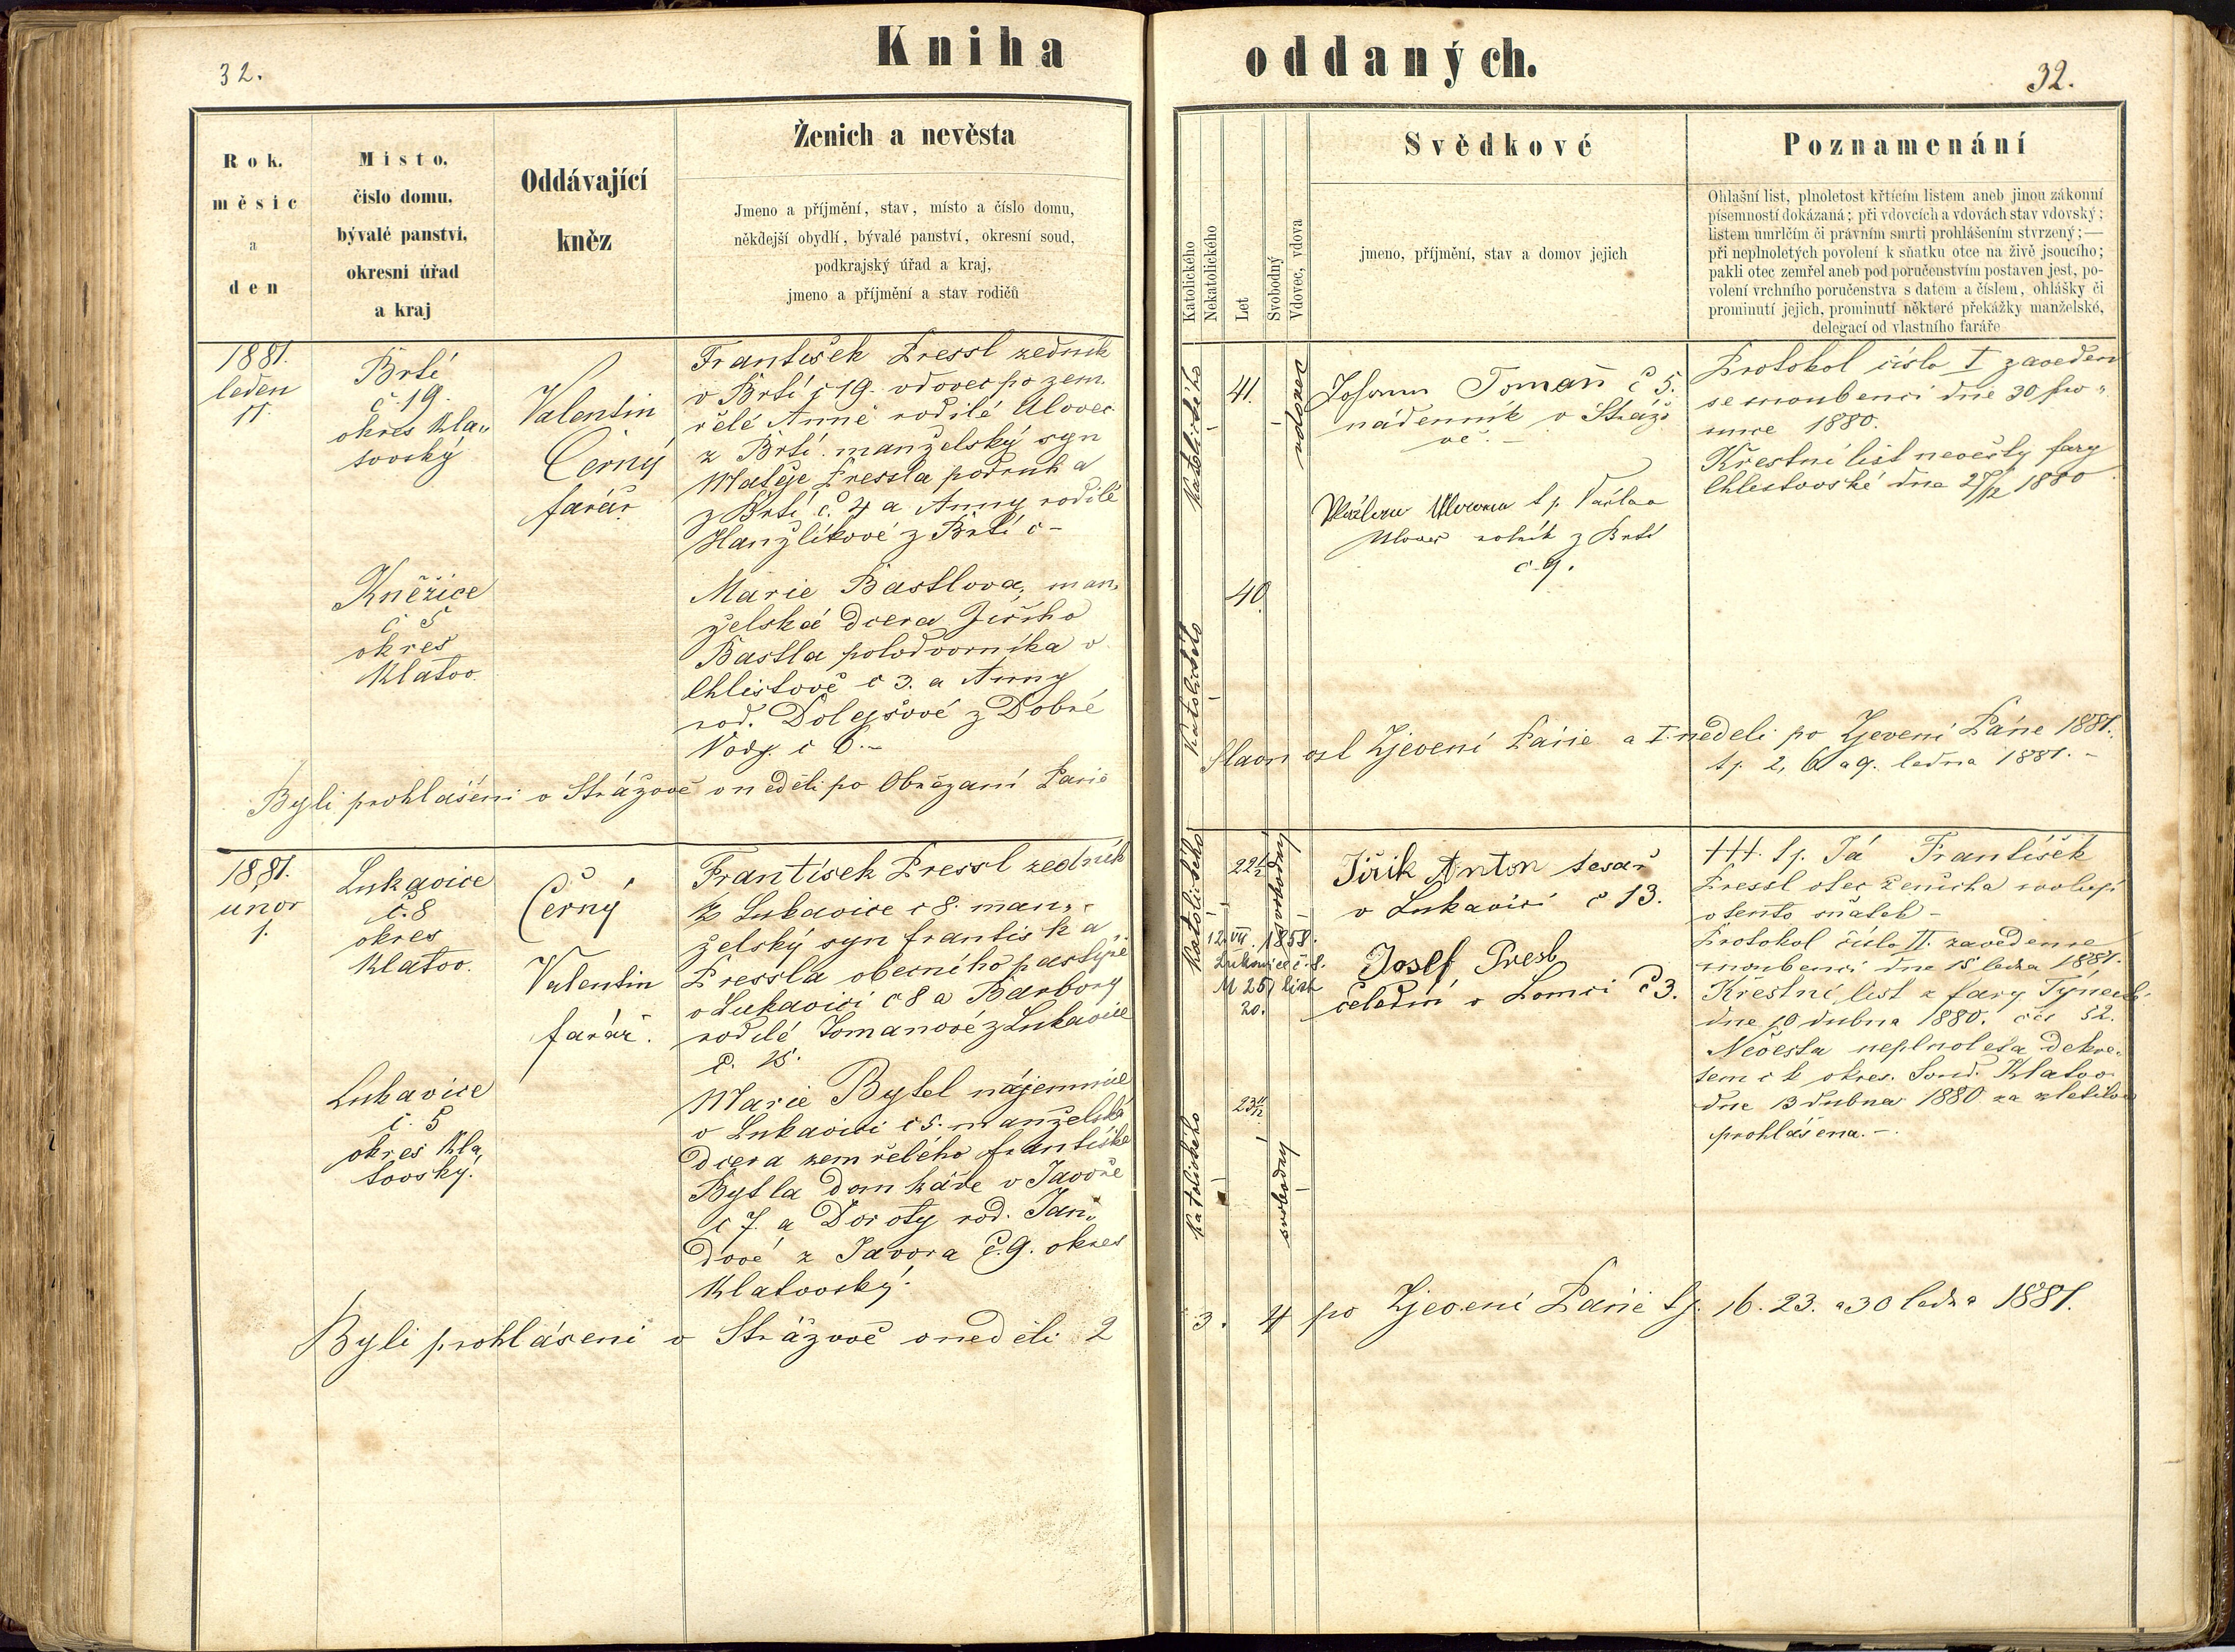 Kniha oddaných.
32.
32.
Rok.
měsíc
a
den
Místo,
číslo domu,
bývalé panství,
okresní úřad
a kraj
Oddávající
kněz
Ženich a nevěsta
Jmeno a příjmění, stav, místo a číslo domu,
někdejší obydlí, bývalé panství, okresní soud,
podkrajský úřad a kraj,
jmeno a příjmění a stav rodičů
Katolického
Nekatolického
Let
Svobodný
Vdovec, vdova
Svědkové
jmeno, příjmění, stav a domov jejich
Poznamenání
Ohlašní list, plnoletost křtícím listem aneb jinou zákonní
písemností dokázaná; při vdovcích a vdovách stav vdovský;
listem umrlčím či právním smrti prohlášením stvrzený;—
při neplnoletých povolení k sňatku otce na živě jsoucího;
pakli otec zemřel aneb pod poručenstvím postaven jest, po-
volení vrchního poručenstva s datem a číslem, ohlášky či
prominutí jejich, prominutí některé překážky manželské,
delegací od vlastního faráře
1881.
leden
11
Brtí
č 19.
okres Kla„
tovský
Valentin
Černý
farář
František Pressl zedník
v Brtí č 19. vdovec po zem
řelé Anně rodilé Ulovec
z Brtí. manželský syn
Matěje Pressla podruh a
z Brtí č. 4 a Anny rodilé
Hanzlíkové z Brtí č -
Kněžice
č 5
okres
Klatov.
Marie Bastlova, man„
želská dcera Jiřího
Bastla polodvorníka v
Chlistově č 3. a Anny
rod. Dolejšové z Dobré
Vody. č 6.-
katolického
41.
vdovec
Johann Toman č 5.
nádenník v Stráž
ově. -
tj. Václav
Ulovec rolník z Brtí
č 9.
katolického
40
Protokol číslo I zaveden
se snoubenci dne 30 pro„
since 1880.
Křestní list nevěsty fary
Chlistovské dne 27/12 1880
Byli prohlášeni v Strážově v neděli po Obřezaní Páně
Slavnost Zjevení Páně a I. neděli po Zjevení Páně 1881.
tj. 2, 6 a 9. ledna 1881. -
1881.
unor
1.
Lukavice
č. 8
okres
Klatov.
Černý
Valentin
farář.
František Pressl zedník
z Lukavice č 8. man„
želský syn františka
Pressla obecního pastýře
v Lukavici č 8 a Barbory
rodilé Tomanové z Lukavice
č. 25.
Lukavice
č. 5
okres Kla
tovský.
Marie Bytel nájemnice
v Lukavici č 5. manželská
dcera zemřelého františka
Bytla domkáře v Javoře
č 7. a Doroty rod. Jan„
dové z Javora č. 9. okres
Klatovský.
katolického
22 1/2
svobodný
12. VII. 1858.
Lukavice č. 8.
M 251 list
20.
katolického
23
svobodný
Jiřík Anton tesař
v Lukavici č 13.
Josef Presl
čeledín v Lomci č 3.
+++. tj. Já František
Pressl otec ženicha svoluji
v tento sňatek -
Protokol číslo II. zaveden se
snoubenci dne 15 ledna 1881.
Křestní list z fary Týnecké
dne 10 dubna 1880. čís 52.
Nevěsta neplnoletá dekre„
tem c k okres. Soud. Klatov
dne 13 dubna 1880 za zletilou
prohlášena. -
Byli prohlášeni v Strážově v neděli 2
3. 4 po Zjevení Páně tj. 16. 23. a 30 ledna 1881.